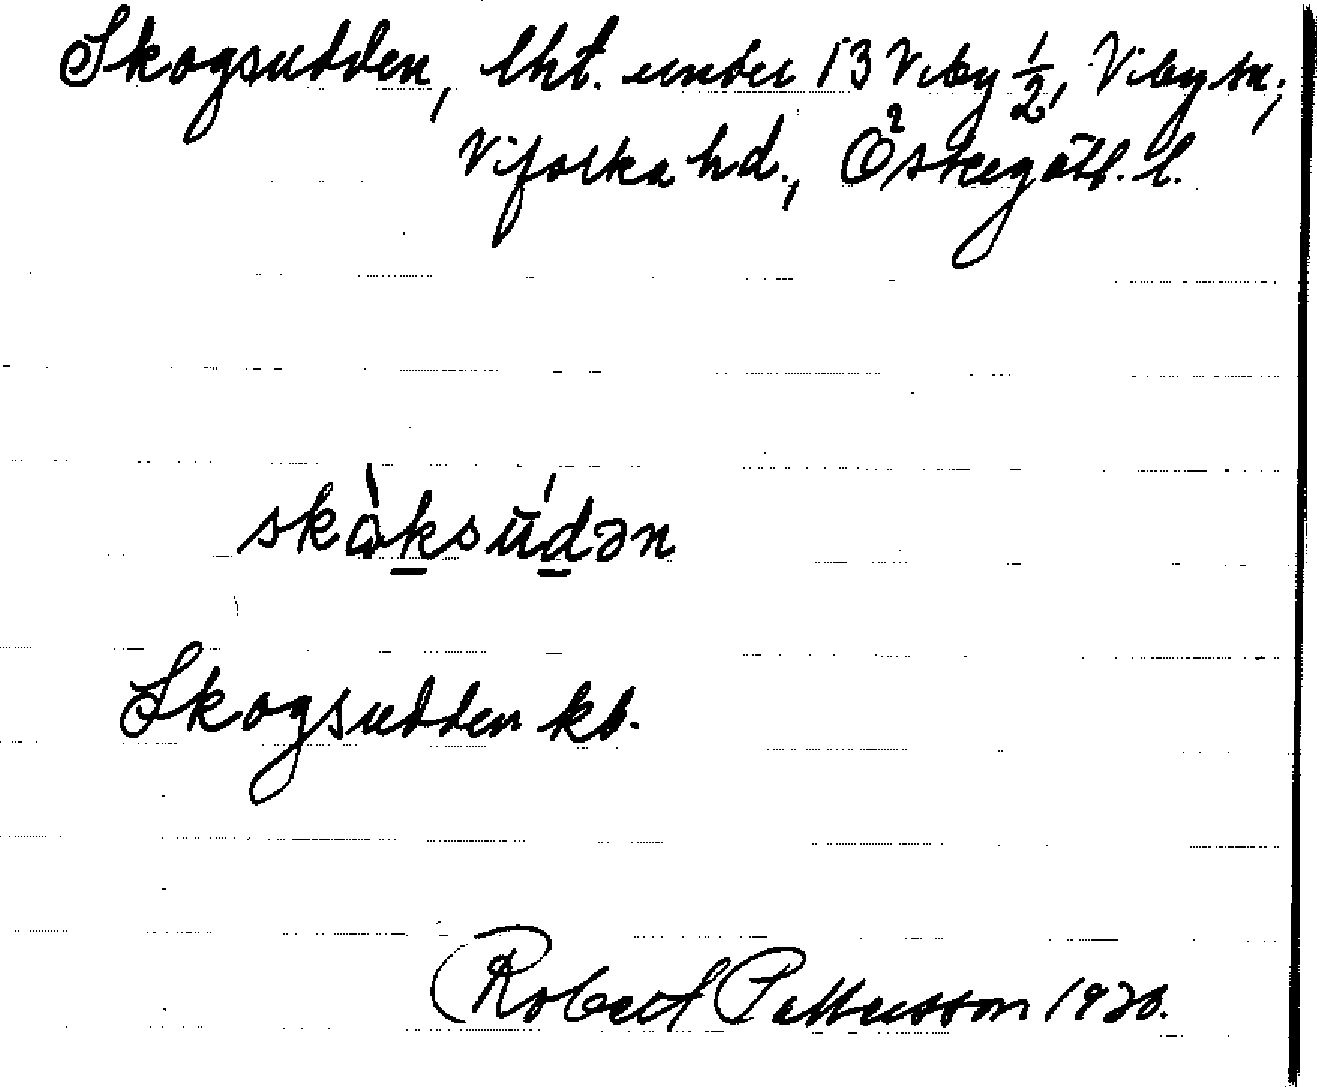 Skogsudden, lht. under 13 Viby 1/2, Viby sn,
Vifolka hd., Östergötl. l.
skòksúdən
Skogsudden kb.
Robert Pettersson 1920.